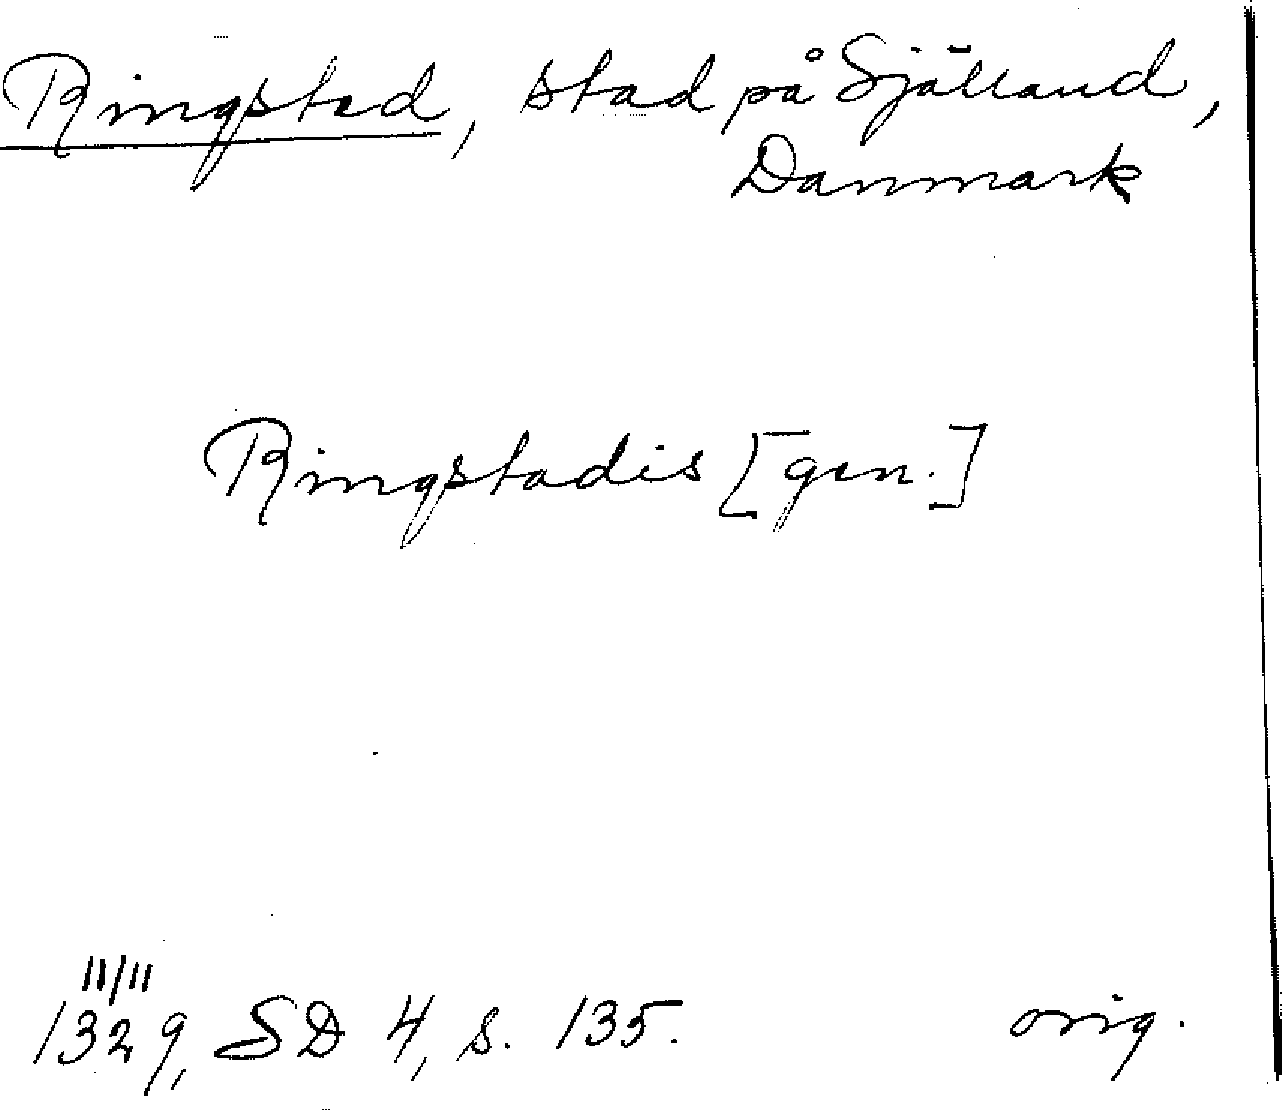 Ringsted, stad på Själland,
Danmark
Ringstadis [gen.]
11/11
1329, SD 4, s. 135. orig.